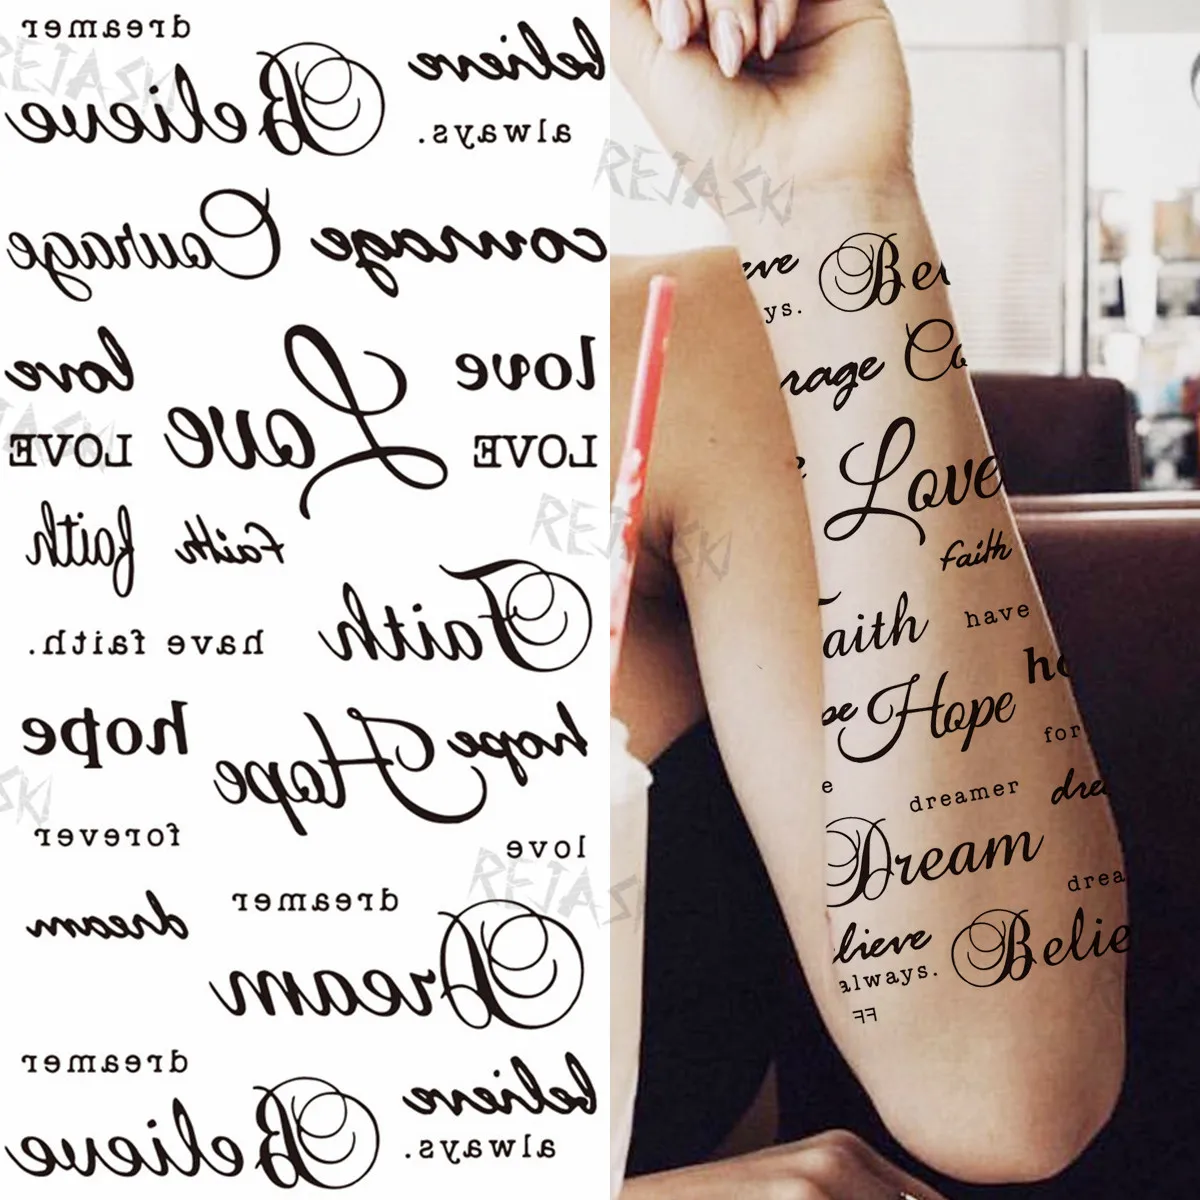 dreamer
Believe believe
always.
Courage courage
love Love love
LOVE LOVE
faith faith
have faith. Faith
hope Hope hope
forever love
dream dreamer
Dream
dreamer
Believe believe
always.
REJASKI
REJASKI
REJASKI
REJASKI
eve Bel
ys.
rage Co
Love
faith
aith have
ho
pe Hope
for
e dreamer dre
Dream
drea
lieve Belie
always.
FF